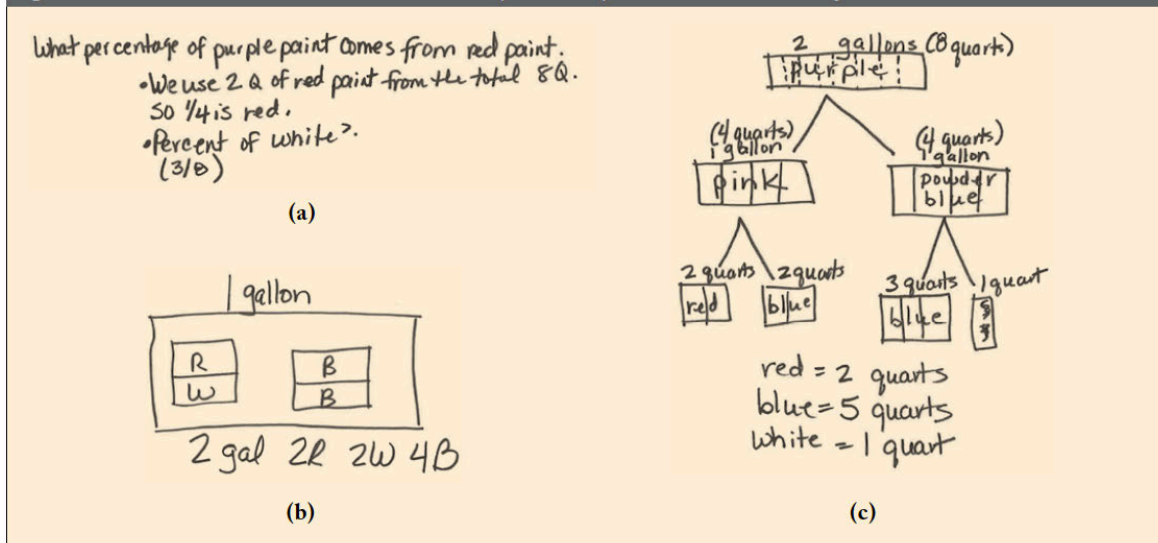 What percentage of purple paint comes from red paint.
•We use 2 Q of red paint from the total 8Q.
So 1/4 is red.
•Percent of white?.
(3/8)
(a)
1 gallon
R
W
B
B
2 gal 2R 2W 4B
(b)
2 gallons (8 quarts)
purple
(4 quarts)
1 gallon
pink
(4 quarts)
1 gallon
powder
blue
2 quarts
red
2 quarts
blue
3 quarts
blue
1 quart
red = 2 quarts
blue = 5 quarts
white = 1 quart
(c)